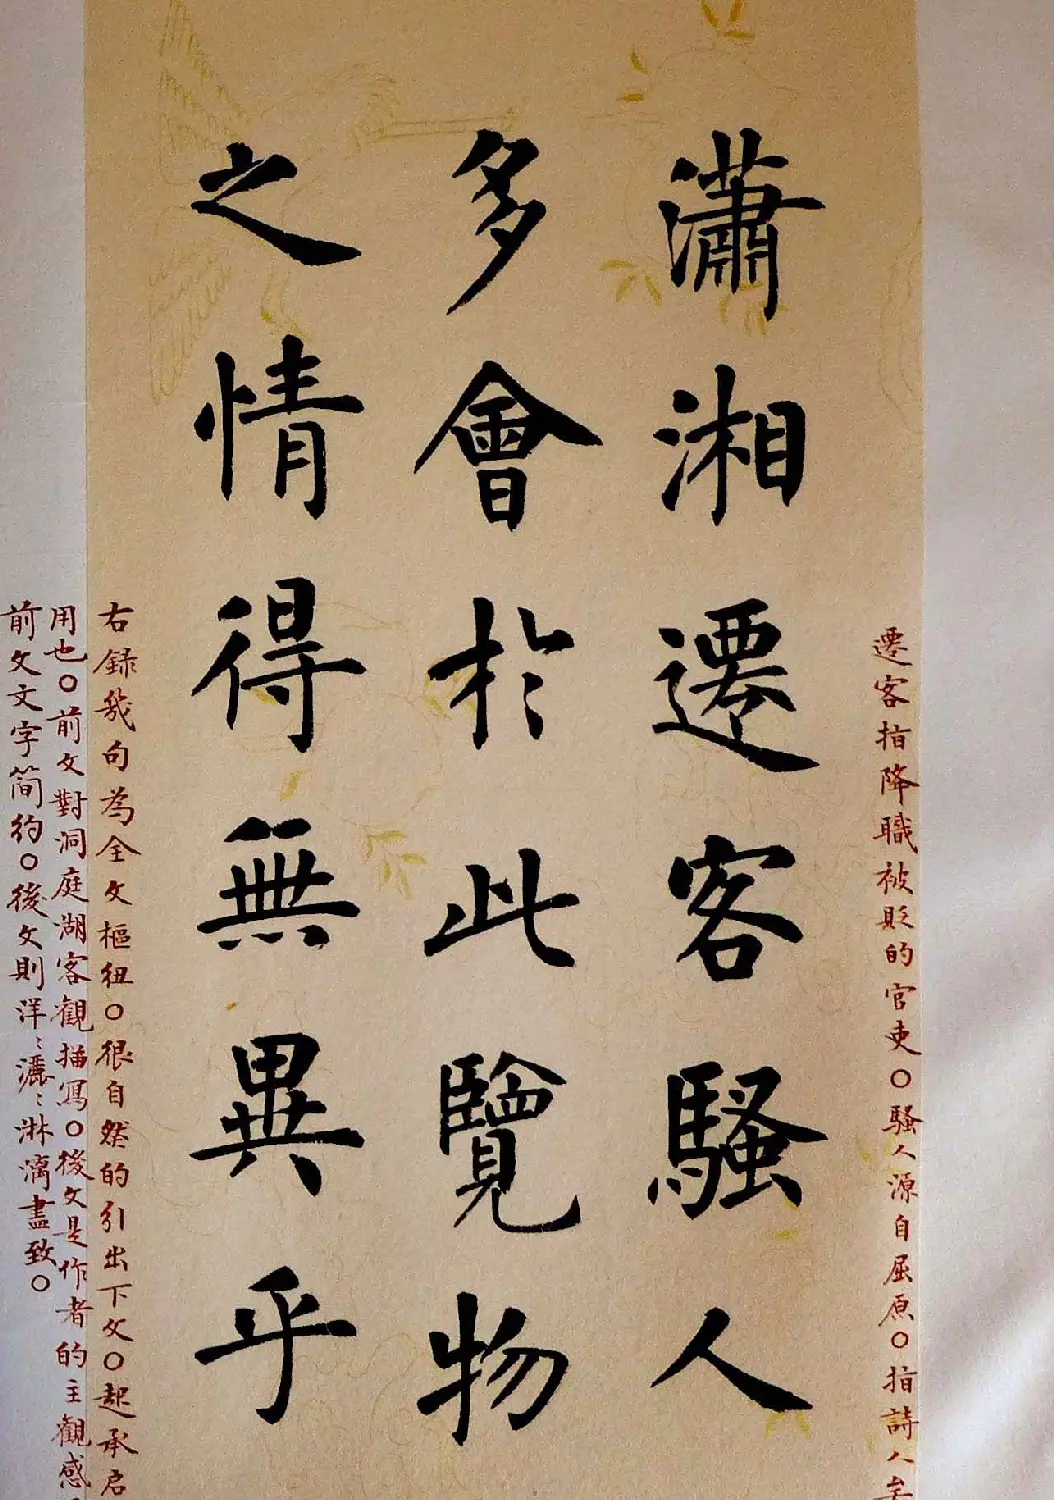 遷客指降職被貶的官吏○騷人源自屈原○指詩人
瀟湘遷客騷人
多會於此覽物
之情得無異乎
右録幾句為全文樞紐○很自然的引出下文○起承启
用也○前文對洞庭湖客觀描寫○後文是作者的主觀感
前文文字简約○後文則洋〻灑〻淋漓盡致○